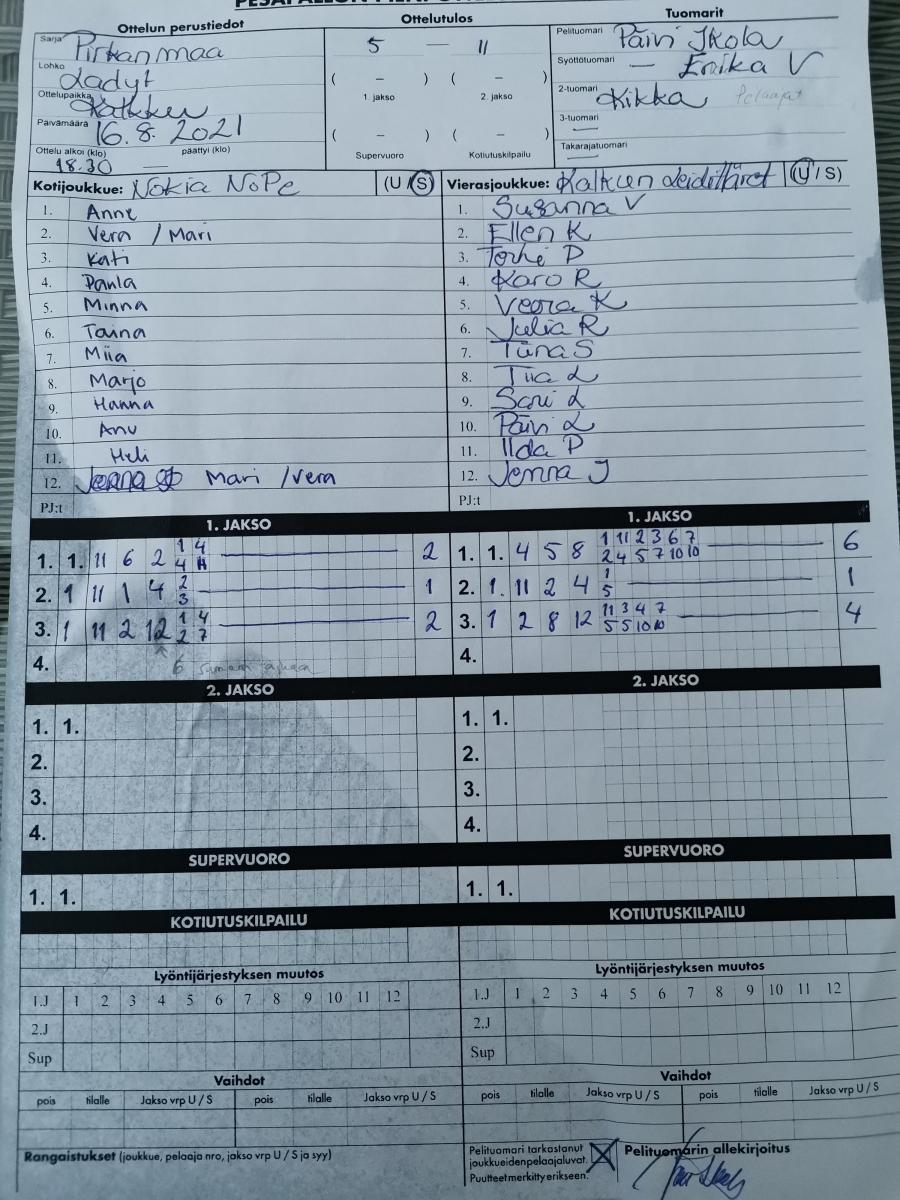 Ottelun perustiedot
Sarja Pirkanmaa
Lohko Ladyt
Ottelupaikka Kalkku
Päivämäärä 16.8.2021
Ottelu alkoi (klo) päättyi (klo)
18.30 —
Ottelutulos
5 — 11
( – ) ( – )
1. jakso 2. jakso
( – ) ( – )
Supervuoro Kotiutuskilpailu
Tuomarit
Pelituomari Päivi Ikola
Syöttötuomari — Erika V
2-tuomari Kikka Pelaajat
3-tuomari —
Takarajatuomari
Kotijoukkue: Nokia NoPe (U / S)
1. Anne
2. Vera / Mari
3. Kati
4. Paula
5. Minna
6. Taina
7. Miia
8. Marjo
9. Hanna
10. Anu
11. Heli
12. Jenna Mari / Vera
PJ:t
Vierasjoukkue: Kalkun Leidittäret (U / S)
1. Susanna V
2. Ellen K
3. Terhi P
4. Karo R
5. Veera K
6. Julia R
7. Tiina S
8. Tiia L
9. Sari L
10. Päivi L
11. Ilda P
12. Jenna J
PJ:t
1. JAKSO
1. 1. 11 6 2 1 4 — 2
4 11
2. 1 11 1 4 2 — 1
3
3. 1 11 2 12 1 4 — 2
2 7
4. 6
1. JAKSO
1. 1. 4 5 8 1 11 2 3 6 7 — 6
2 4 5 7 10 10
2. 1. 11 2 4 1 — 1
5
3. 1 2 8 12 11 3 4 7 — 4
5 5 10 10
4.
2. JAKSO
1. 1.
2.
3.
4.
2. JAKSO
1. 1.
2.
3.
4.
SUPERVUORO
1. 1.
SUPERVUORO
1. 1.
KOTIUTUSKILPAILU
KOTIUTUSKILPAILU
Lyöntijärjestyksen muutos
1.J 1 2 3 4 5 6 7 8 9 10 11 12
2.J
Sup
Lyöntijärjestyksen muutos
1.J 1 2 3 4 5 6 7 8 9 10 11 12
2.J
Sup
Vaihdot
pois tilalle Jakso vrp U / S pois tilalle Jakso vrp U / S
Vaihdot
pois tilalle Jakso vrp U / S pois tilalle Jakso vrp U / S
Rangaistukset (joukkue, pelaaja nro, jakso vrp U / S ja syy)
Pelituomari tarkastanut
joukkueiden pelaajaluvat.
Puutteet merkitty erikseen.
Pelituomarin allekirjoitus